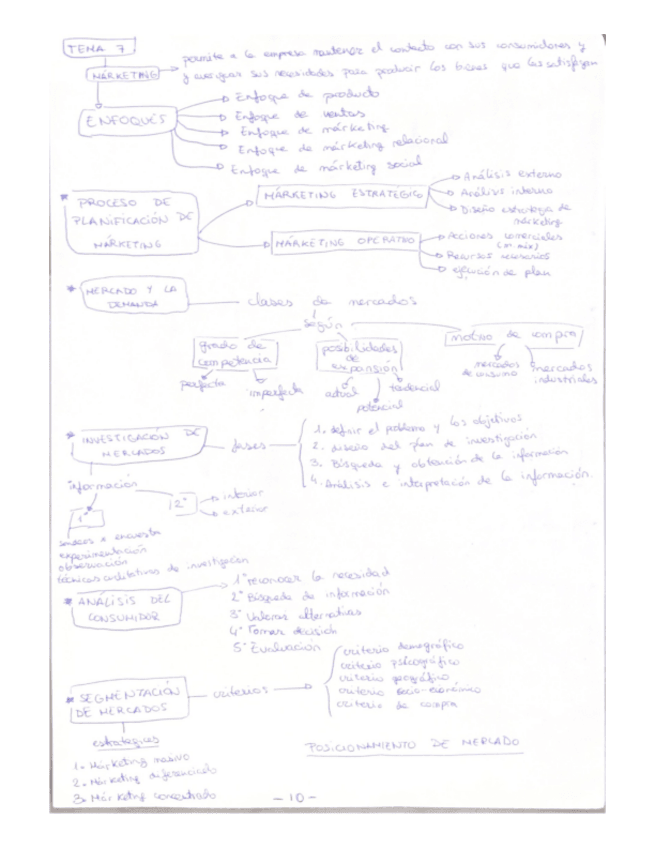 TEMA 7
MÁRKETING
permite a la empresa mantener el contacto con sus consumidores y
y averiguar sus necesidades para producir los bienes que las satisfagan
ENFOQUES
Enfoque de producto
Enfoque de ventas
Enfoque de márketing
Enfoque de márketing relacional
Enfoque de márketing social
* PROCESO DE
PLANIFICACIÓN DE
MÁRKETING
MÁRKETING ESTRATÉGICO
Análisis externo
Análisis interno
Diseño estrategia de
márketing
MÁRKETING OPERATIVO
Acciones comerciales
(m. mix)
Recursos necesarios
ejecución de plan
* MERCADO Y LA
DEMANDA
clases de mercados
según
grado de
competencia
perfecta
imperfecta
posibilidades
de
expansión
actual
potencial
tendencial
motivo de compra
mercados
de consumo
mercados
industriales
* INVESTIGACIÓN DE
MERCADOS
fases
1. definir el problema y los objetivos
2. diseño del plan de investigación
3. Búsqueda y obtención de la información
4. Análisis e interpretación de la información.
información
1ª
2ª
interior
exterior
sondeos o encuesta
experimentación
observación
técnicas cualitativas de investigación
* ANÁLISIS DEL
CONSUMIDOR
1º reconocer la necesidad
2º Búsqueda de información
3º Valorar alternativas
4º Tomar decisión
5º Evaluación
* SEGMENTACIÓN
DE MERCADOS
criterios
criterio demográfico
criterio psicográfico
criterio geográfico
criterio socio-económico
criterio de compra
estrategias
1. Márketing masivo
2. Márketing diferenciado
3. Márketing concentrado
POSICIONAMIENTO DE MERCADO
- 10 -